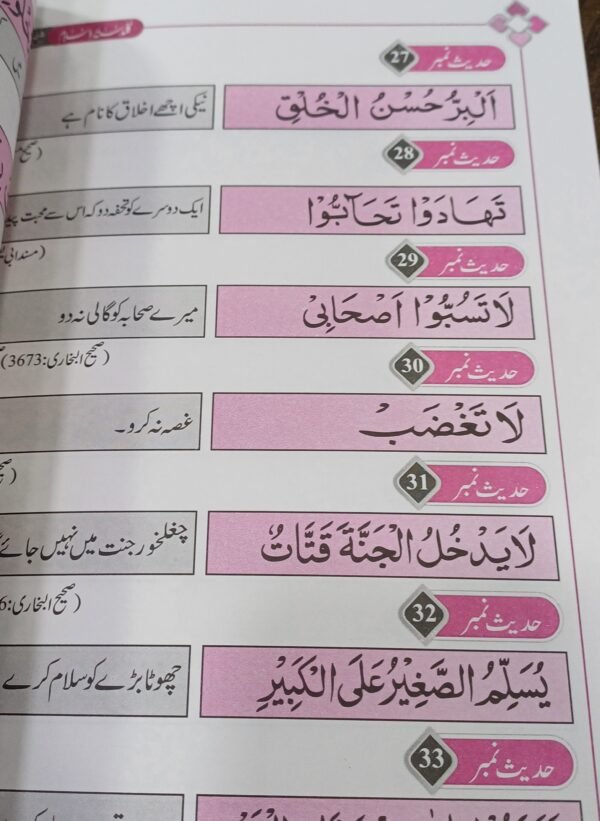 حدیث نمبر 27
اَلْبِرُّ حُسْنُ الْخُلُقِ
نیکی اچھے اخلاق کا نام ہے
حدیث نمبر 28
تَهَادَوْا تَحَابُّوْا
ایک دوسرے کو تحفہ دو کہ اس سے محبت
حدیث نمبر 29
لَا تَسُبُّوْا اَصْحَابِیْ
میرے صحابہ کو گالی نہ دو
(صحیح البخاری:3673)
حدیث نمبر 30
لَا تَغْضَبْ
غصہ نہ کرو۔
حدیث نمبر 31
لَا يَدْخُلُ الْجَنَّةَ قَتَّاتٌ
چغلخور جنت میں نہیں جائے
(صحیح البخاری:6
حدیث نمبر 32
يُسَلِّمُ الصَّغِيْرُ عَلَى الْكَبِيْرِ
چھوٹا بڑے کو سلام کرے
حدیث نمبر 33